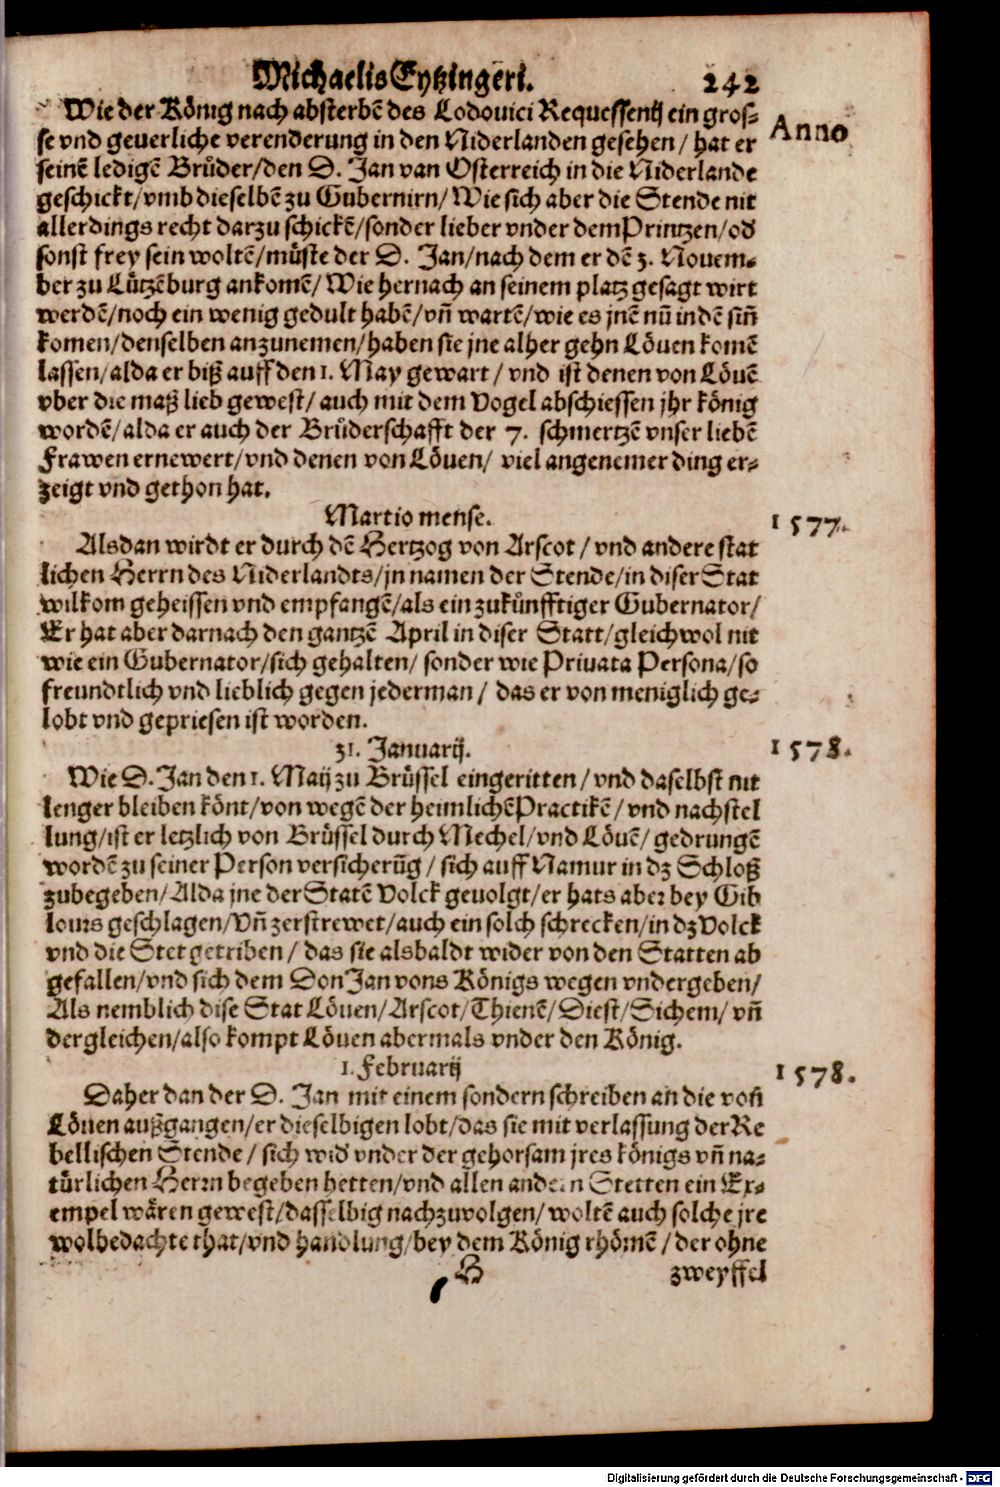 Michaelis Eytzingeri. 242
Wie der König nach absterbē des Lodovici Requessentij ein gros-
Anno
se vnd geuerliche verenderung in den Niderlanden gesehen / hat er
seinē ledigē Brůder/den D. Jan van Osterreich in die Niderlande
geschickt/vmb dieselbē zu Gubernirn/Wie sich aber die Stende nit
allerdings recht darzu schickē/sonder lieber vnder dem Printzen/od
sonst frey sein woltē/můste der D. Jan/nach dem er dē 3. Novem-
ber zu Lützēburg ankomē/Wie hernach an seinem platz gesagt wirt
werdē/noch ein wenig gedult habē/vñ wartē/wie es jnē nū in dē siñ
komen/denselben anzunemen/haben sie jne alher gehn Löuen komē
lassen/alda er biß auff den 1. May gewart / vnd ist denen von Löuē
vber die maß lieb gewest/ auch mit dem Vogel abschiessen jhr könig
wordē/alda er auch der Brůderschafft der 7. schmertzē vnser liebē
Frawen ernewert/vnd denen von Löuen/ viel angenemer ding er-
zeigt vnd gethon hat.
Martio mense. 1577.
Alsdan wirdt er durch dē Hertzog von Arscot / vnd andere stat
lichen Herrn des Niderlandts/jn namen der Stende/in diser Stat
wilkom geheissen vnd empfangē/als ein zukůnfftiger Gubernator/
Er hat aber darnach den gantzē April in diser Statt/gleichwol nit
wie ein Gubernator/sich gehalten/ sonder wie Privata Persona/so
freundtlich vnd lieblich gegen jederman / das er von meniglich ge-
lobt vnd gepriesen ist worden.
31. Januarij. 1578.
Wie D. Jan den 1. Maij zu Brůssel eingeritten / vnd daselbst nit
lenger bleiben könt/von wegē der heimlichē Practikē/ vnd nachstel
lung/ist er letzlich von Brůssel durch Mechel/vnd Löuē/ gedrungē
wordē zu seiner Person versicherūg / sich auff Namur in dz Schloß
zubegeben/Alda jne der Statē Volck gevolgt/er hats aber bey Gib
lours geschlagen/Vñ zerstrewet/auch ein solch schrecken/in dz Volck
vnd die Stet getriben / das sie alsbaldt wider von den Statten ab
gefallen/vnd sich dem Don Jan vons Königs wegen vndergeben/
Als nemblich dise Stat Löuen/Arscot/Thienē/Diest/Sichem/ vñ
dergleichen/also kompt Löuen abermals vnder den König.
1. Februarij 1578.
Daher dan der D. Jan mit einem sondern schreiben an die voñ
Löuen außgangen/er dieselbigen lobt/das sie mit verlassung der Re
bellischen Stende / sich wid vnder der gehorsam jres königs vñ na-
türlichen Herrn begeben hetten/vnd allen andern Stetten ein Ex-
empel wären gewest/dasselbig nachzuvolgen/ woltē auch solche jre
wolbedachte that/vnd handlung/bey dem König rhömē / der ohne
H zweyffel
Digitalisierung gefördert durch die Deutsche Forschungsgemeinschaft - DFG